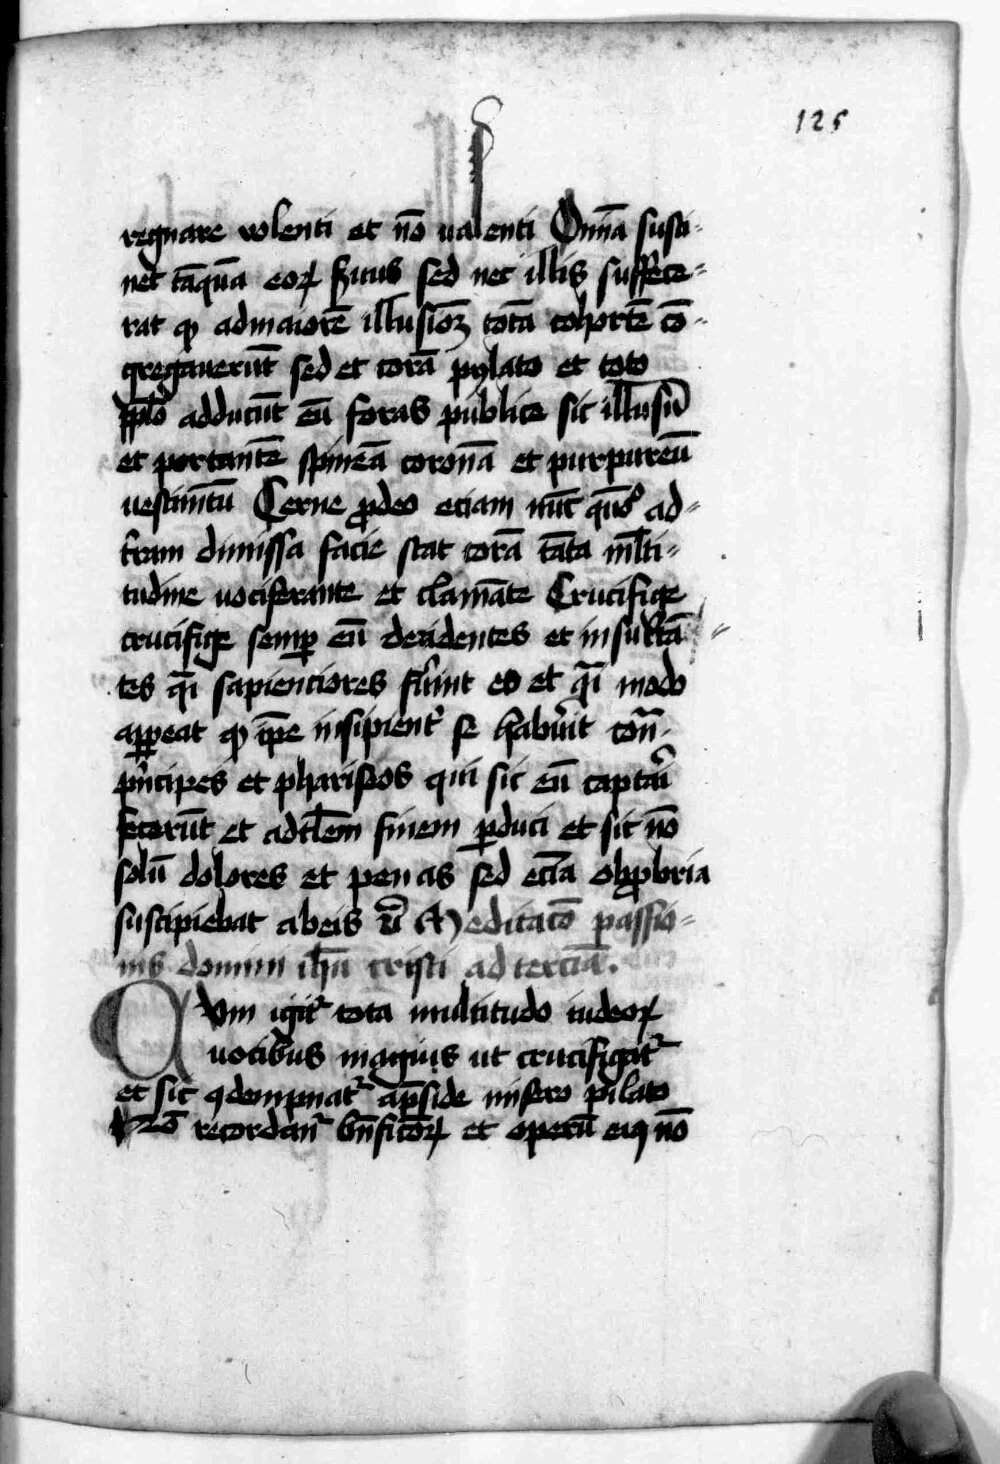 125
regnare volenti et nō ualenti Om̄ia susti-
net tāquā eoꝝ s̄uus sed nec illis suffece-
rat ꝙ admaiorē illusionꝫ totā cohortē cō-
gregauerūt sed et corā pylato et toto
pp̄lo adducūt eū foras publice sic illusū
et portantē spineā coronā et purpureū
uestimētū Cerne ꝓdeo etiam nūc ad-
t̄ram dimissa facie stat corā tāta ml̄ti-
tudine uociferante et clamāte Crucifige
crucifige semꝑ eū deridentes et insultā-
tes qͣi sapienciores fuint eo et qͣi modo
apꝑeat ꝙ ip̄e insipient͛ se hab̾it con̄-
pͥncipes et phariseos qui sic eū
fecerūt et adtl̄em finem ꝑduci et sic nō
solū dolores et penas sed ecīa obꝓbria
suscipiebat abeis Meditacō passio-
nis domini ih̄u cristi ad terciā.
Cum igit͛ tota multitudo iudeoꝝ
uocibus magnis ut crucifigat͛
et sic ꝯdempnat͛ ap̄side misero pilato
Nō recordant͛ bn̄ficioꝝ et operū eiꝰ nō